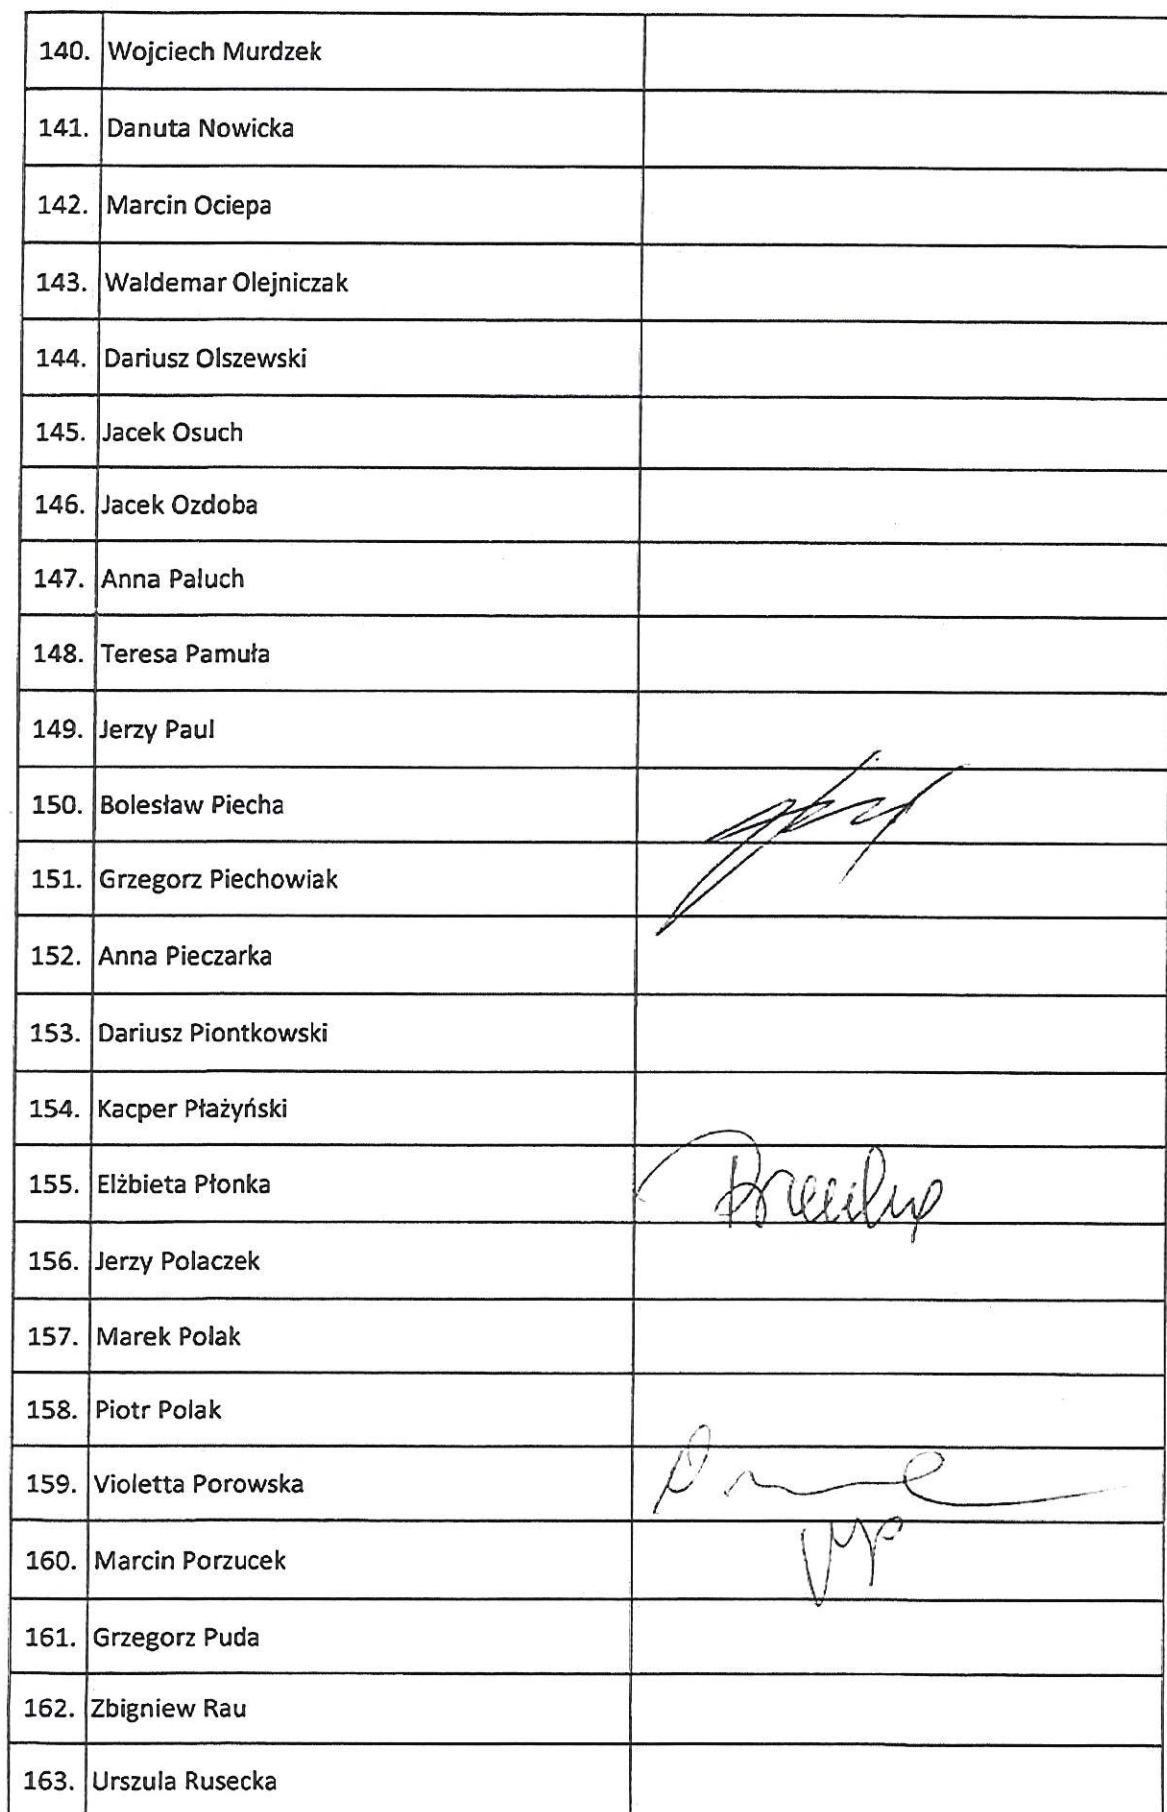 140. Wojciech Murdzek
141. Danuta Nowicka
142. Marcin Ociepa
143. Waldemar Olejniczak
144. Dariusz Olszewski
145. Jacek Osuch
146. Jacek Ozdoba
147. Anna Paluch
148. Teresa Pamuła
149. Jerzy Paul
150. Bolesław Piecha
151. Grzegorz Piechowiak
152. Anna Pieczarka
153. Dariusz Piontkowski
154. Kacper Płażyński
155. Elżbieta Płonka
156. Jerzy Polaczek
157. Marek Polak
158. Piotr Polak
159. Violetta Porowska
160. Marcin Porzucek
161. Grzegorz Puda
162. Zbigniew Rau
163. Urszula Rusecka